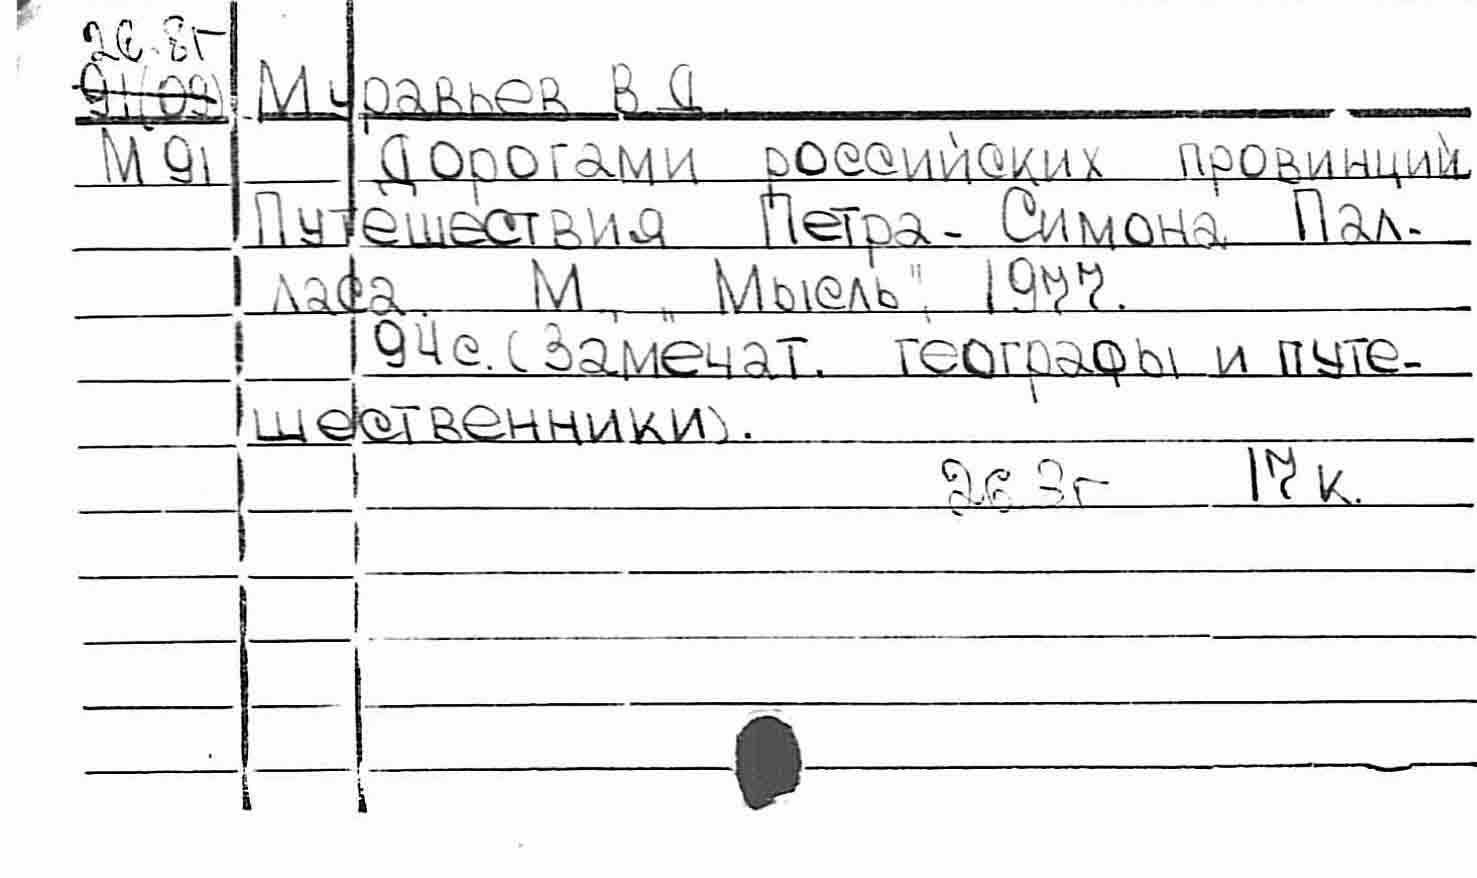 26.8г
91(09) Муравьев В Д.
М 91 Дорогами российских провинций
Путешествия Петра-Симона Пал-
ласа. М., "Мысль", 1977.
94с. (Замечат. географы и путе-
шественники).
26 3г 17 к.